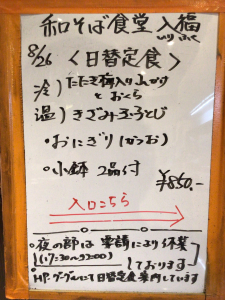 和そば食堂 入福
いり ふく
8/26 〈日替定食〉
冷)たたき梅入り山かけ
とおくら
温)きざみ玉ろとじ
・おにぎり(かつお)
・小鉢 2品付
¥850.-
入口こちら
・夜の部は 要請により休業
(17:30〜22:00)しております
・HP・グーグルにて日替定食案内しています